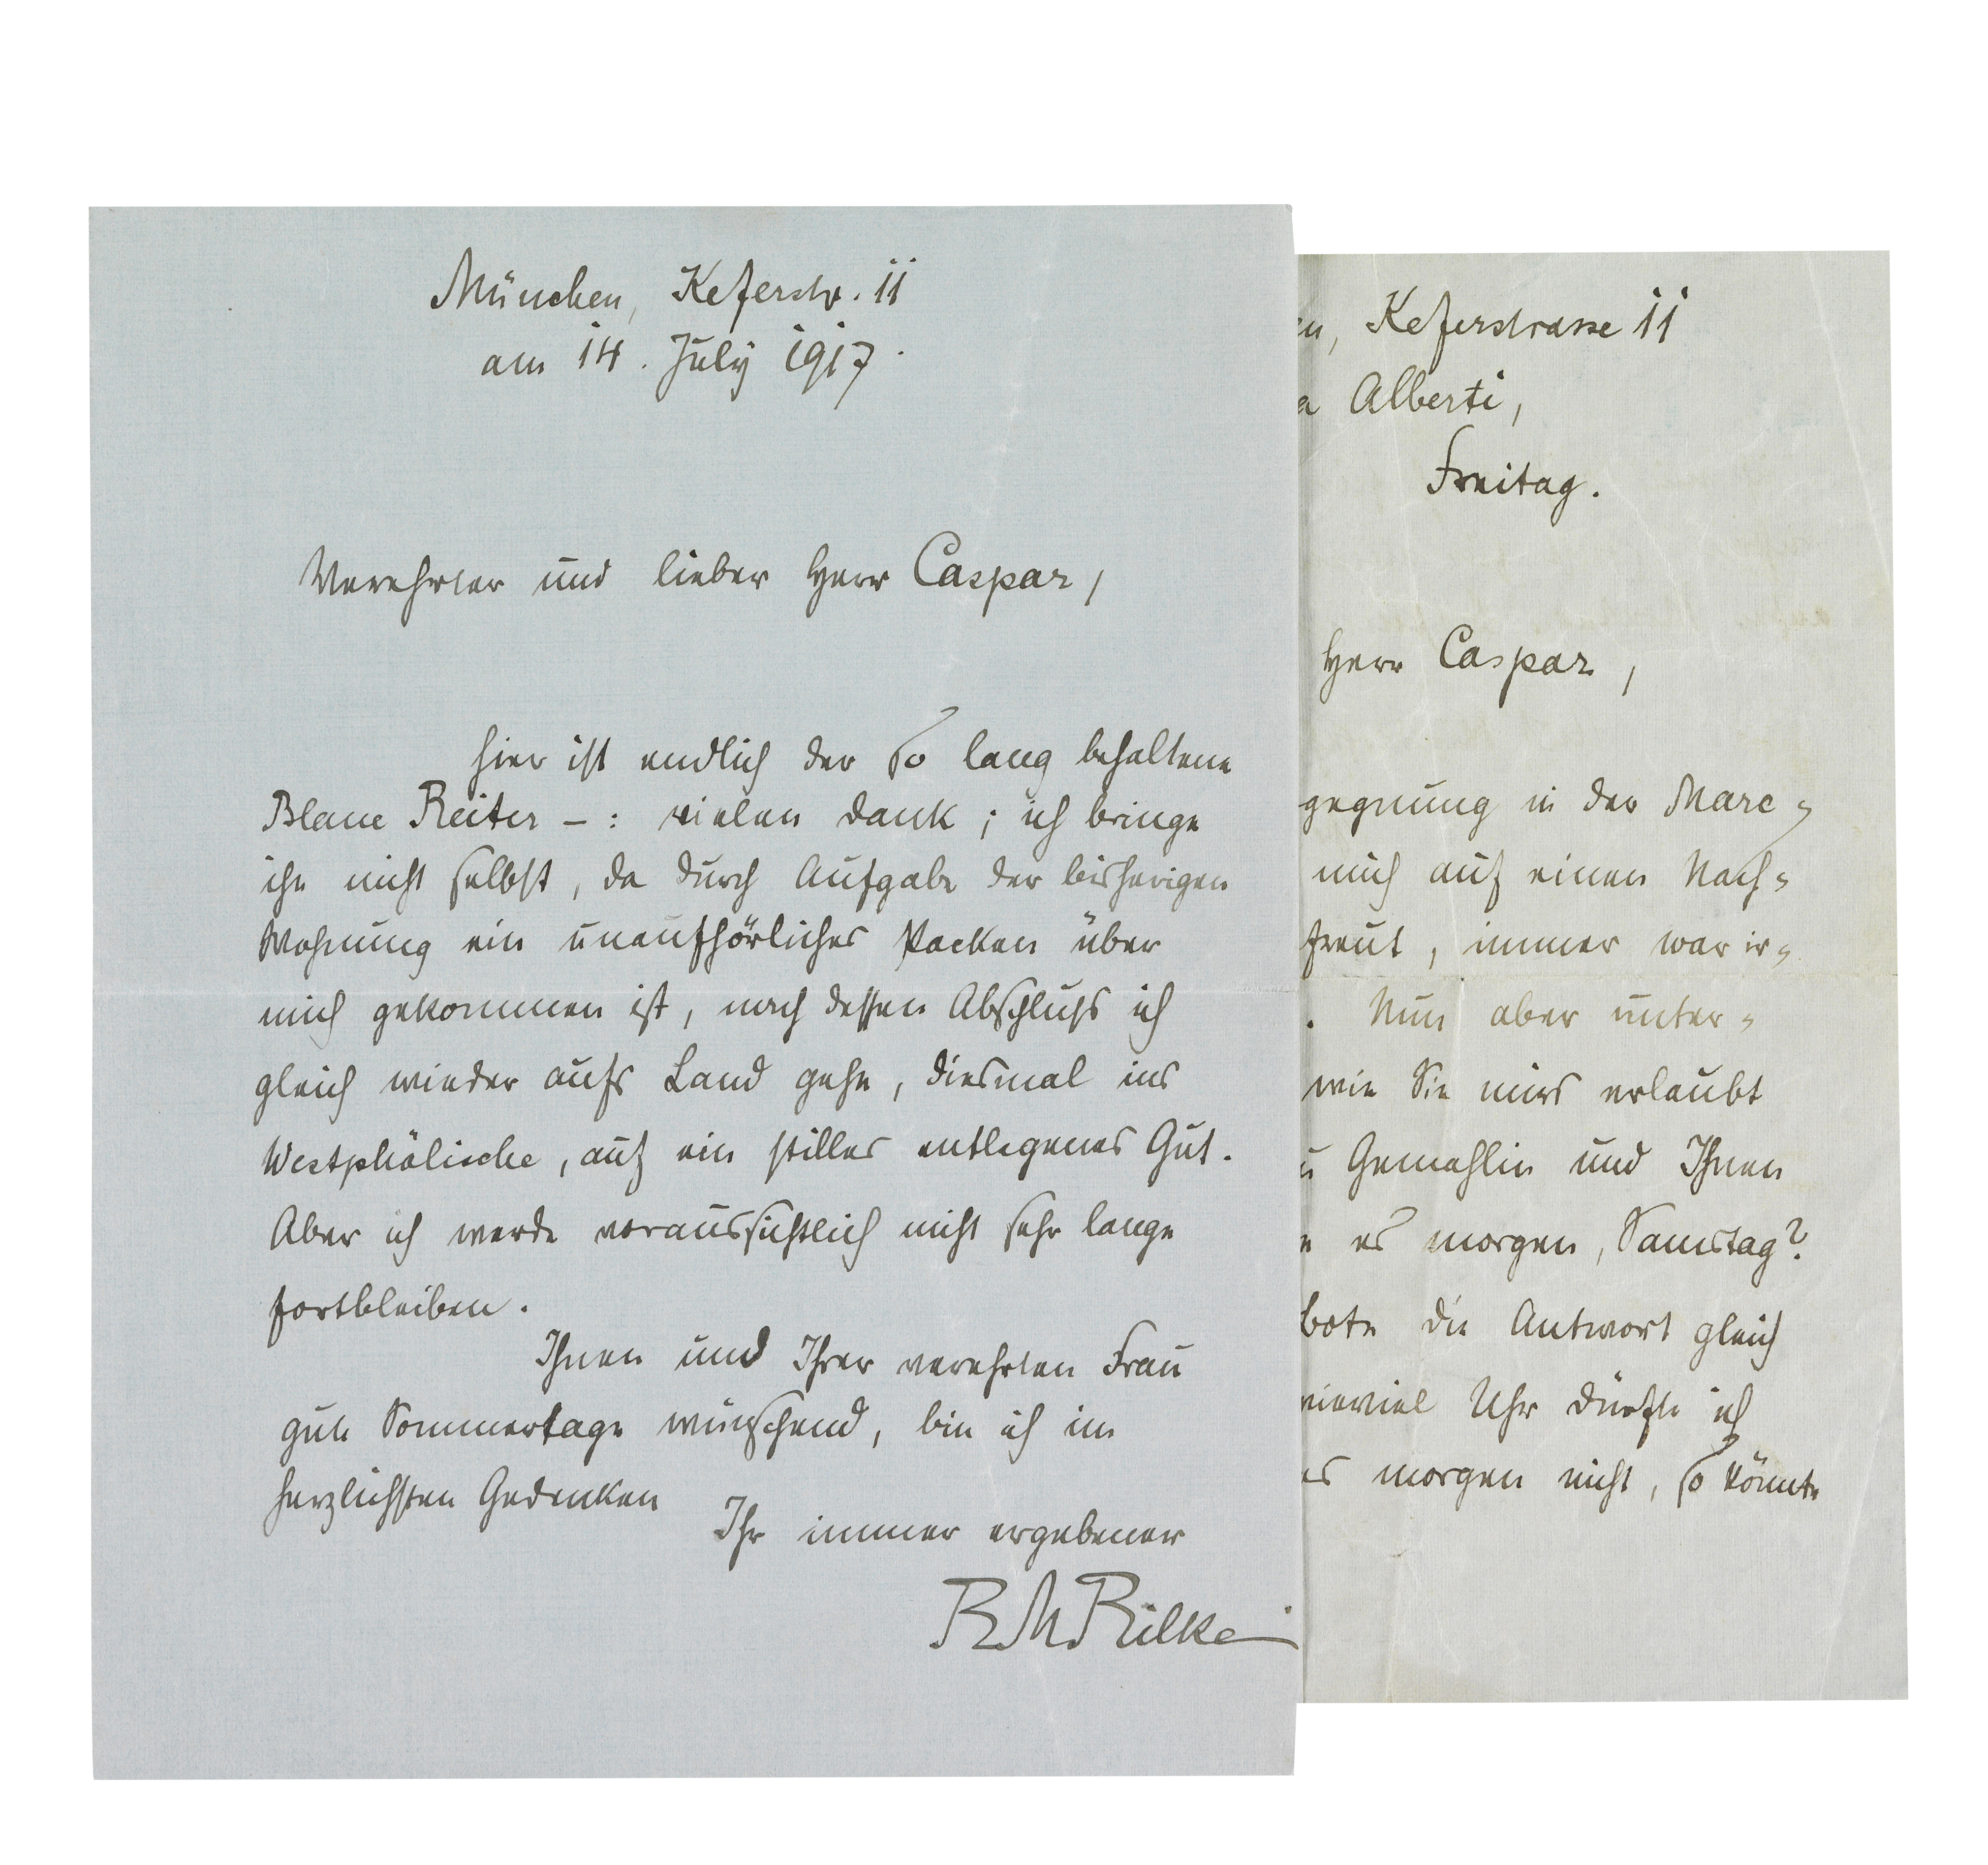 München, Keferstr. 11
am 14. July 1917.
Verehrter und lieber Herr Caspar,
hier ist endlich der so lang behaltene
Blaue Reiter – : vielen Dank ; ich bringe
ihn nicht selbst, da durch Aufgabe der bisherigen
Wohnung ein unaufhörliches Packen über
mich gekommen ist, nach dessen Abschluss ich
gleich wieder aufs Land gehe, diesmal ins
Westphälische, auf ein stilles entlegenes Gut.
Aber ich werde voraussichtlich nicht sehr lange
fortbleiben.
Ihnen und Ihrer verehrten Frau
gute Sommertage wünschend, bin ich im
herzlichsten Gedenken
Ihr immer ergebener
RMRilke
en, Keferstrasse 11
a Alberti,
Freitag.
Herr Caspar,
gegnung in der Marc-
mich auf einen Nach-
freut, immer war ir-
. Nun aber unter-
wie Sie mirs erlaubt
u Gemahlin und Ihnen
e es morgen, Samstag?
bote die Antwort gleich
wieviel Uhr dürfte ich
es morgen nicht, so könnte